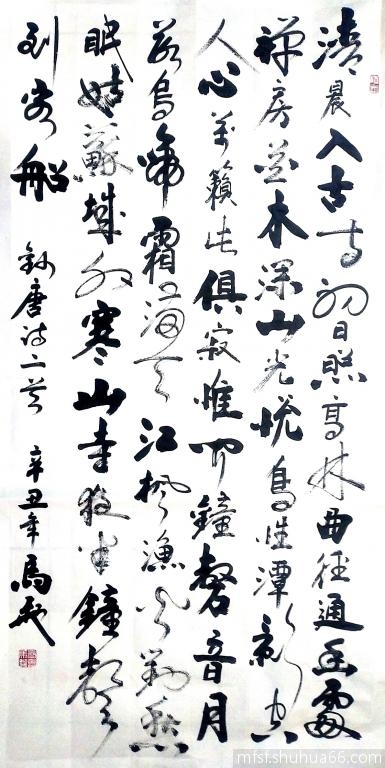 清晨入古寺初日照高林曲径通幽處
禅房花木深山光悦鳥性潭影空
人心萬籟此俱寂惟闻鐘磬音月
落烏啼霜满天江枫渔火對愁
眠姑蘇城外寒山寺夜半鐘聲
到客船 錄唐诗二首 辛丑年馬
mfsf.shuhua66.com